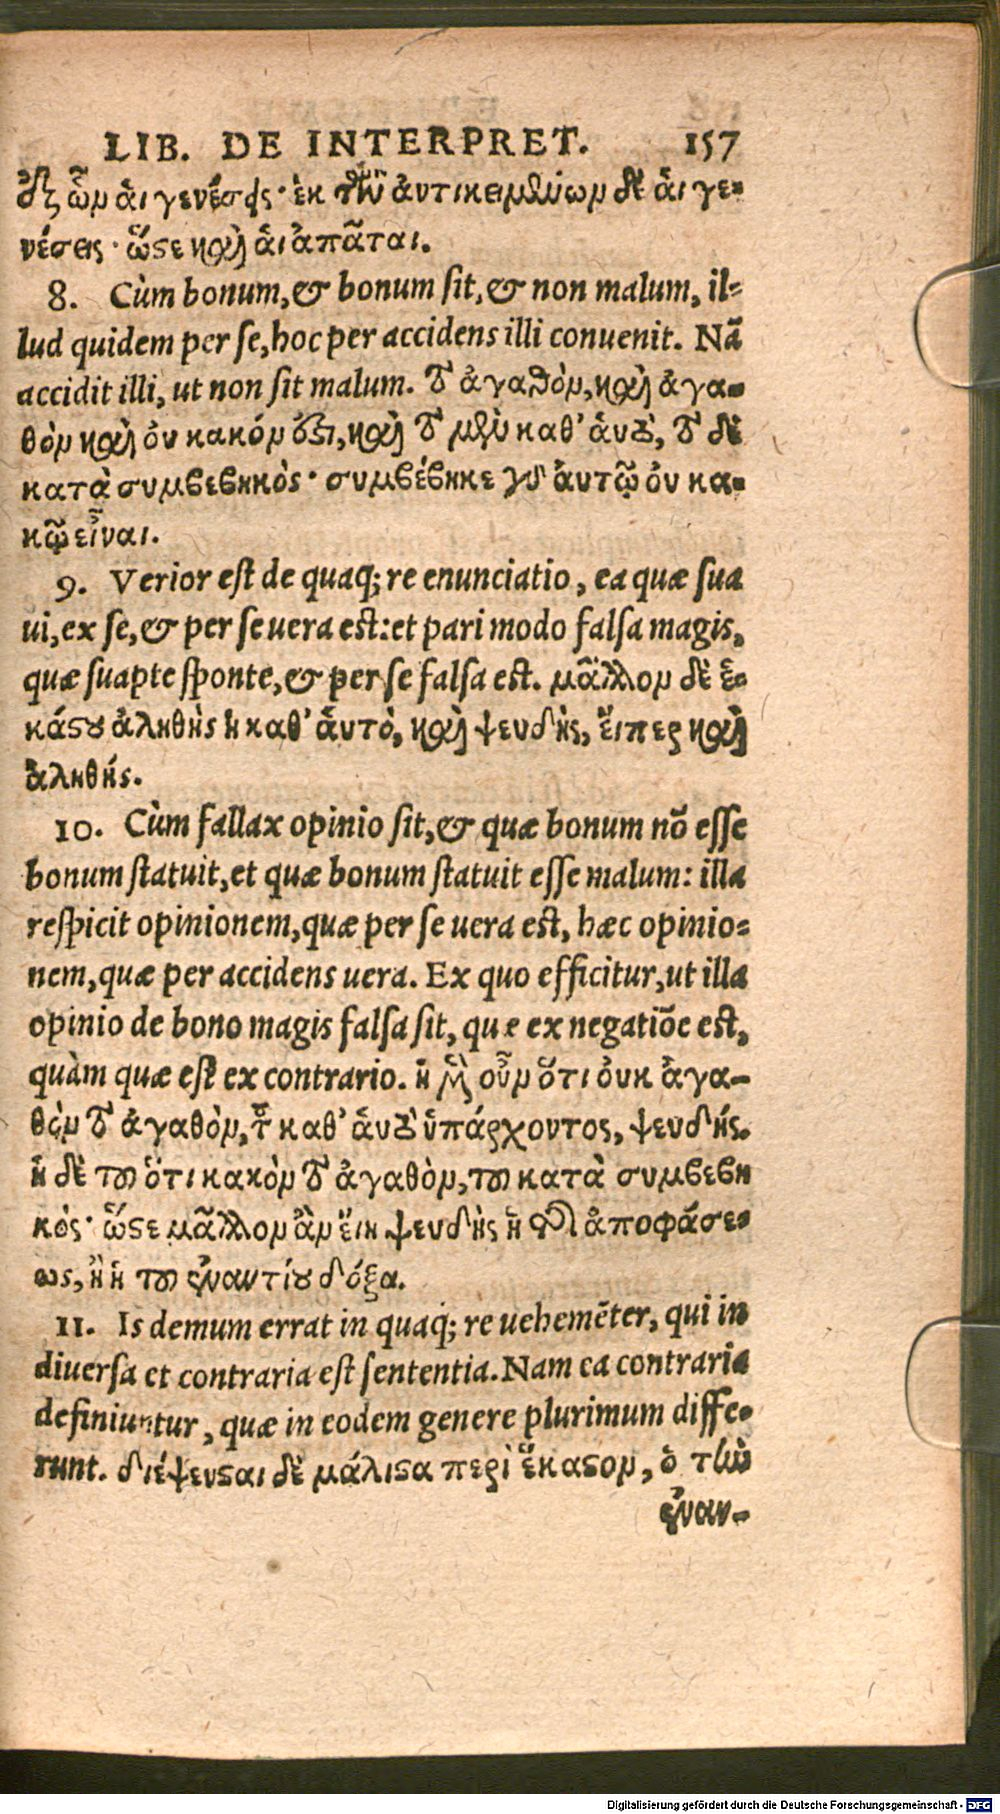 LIB. DE INTERPRET. 157
ὃξ ὧν ἁι γενέσεις· ἐκ τῶν ἀντικειμένων δὲ ἁι γε-
νέσεις· ὥστε καὶ ἁι ἀπᾶται.
8. Cùm bonum, & bonum sit, & non malum, il-
lud quidem per se, hoc per accidens illi conuenit. Nã
accidit illi, ut non sit malum. τὸ ἀγαθὸν, καὶ ἀγα-
θὸν καὶ ὀυ κακόν ὅξι, καὶ τὸ μὲν καθ' ἁυτὸ, τὸ δὲ
κατὰ συμβεβηκὸς· συμβέβηκε γὰρ ἁυτῷ ὀυ κα-
κῷ εἶναι.
9. Verior est de quaq; re enunciatio, ea quæ sua
ui, ex se, & per se uera est: et pari modo falsa magis,
quæ suapte sponte, & per se falsa est. μᾶλλον δὲ ἑ-
κάστου ἀληθὴς ἡ καθ' ἁυτὸ, καὶ ψευδὴς, ἔιπερ καὶ
ἀληθής.
10. Cùm fallax opinio sit, & quæ bonum nõ esse
bonum statuit, et quæ bonum statuit esse malum: illa
respicit opinionem, quæ per se uera est, hæc opinio-
nem, quæ per accidens uera. Ex quo efficitur, ut illa
opinio de bono magis falsa sit, quæ ex negatiõe est,
quàm quæ est ex contrario. ἡ μὲν οὖν ὅτι ὀυκ ἀγα-
θὸν τὸ ἀγαθὸν, τοῦ καθ' ἁυτὸ ὑπάρχοντος, ψευδής.
ἡ δὲ τοῦ ὅτι κακὸν τὸ ἀγαθὸν, τοῦ κατὰ συμβεβη
κὸς· ὥστε μᾶλλον ἂν ἔιη ψευδὴς ἡ τῆς ἀποφάσε-
ως, ἢ ἡ τοῦ ἐναντίου δόξα.
11. Is demum errat in quaq; re uehemẽter, qui in
diuersa et contraria est sententia. Nam ea contraria
definiuntur, quæ in eodem genere plurimum diffe-
runt. διέψευσται δὲ μάλιστα περὶ ἕκαστον, ὁ τὴν
ἐναν-
Digitalisierung gefördert durch die Deutsche Forschungsgemeinschaft - DFG